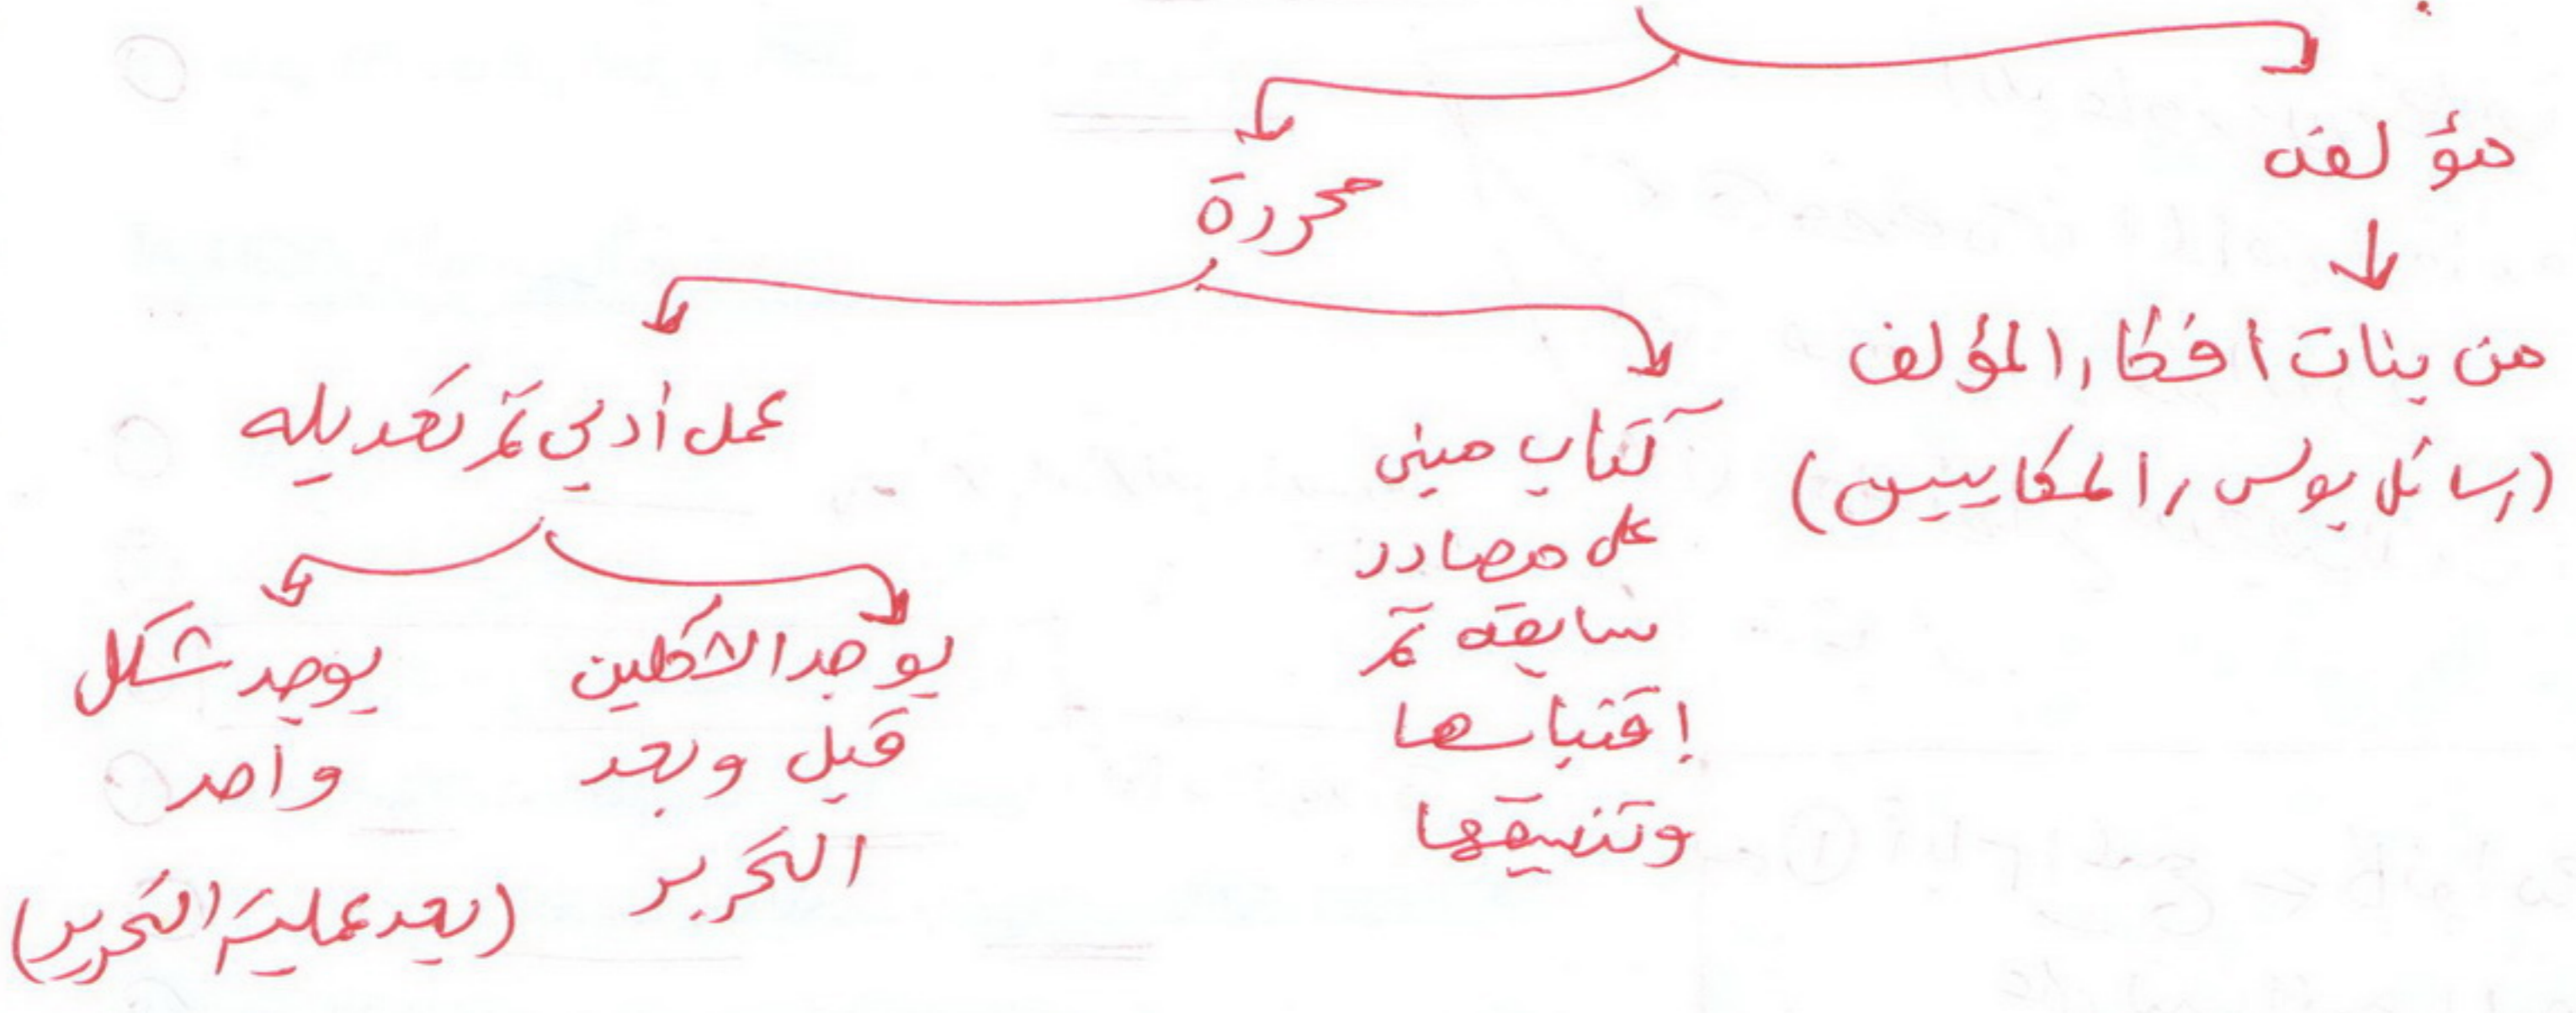 مؤلفة
من بنات افكار المؤلف
(رسائل بولس، المكابيين)
محررة
كتاب مبني
على مصادر
سابقة تم
إقتباسها
وتنسيقها
عمل أدبي تم تعديله
يوجد الشكلين
قبل وبعد
التحرير
يوجد شكل
واحد
(بعد عملية التحرير)